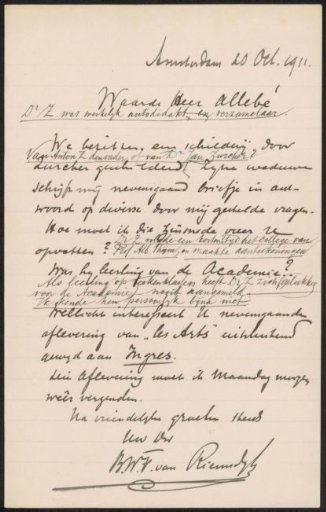 Amsterdam 20 Oct. 1911.
Waarde Heer Allebé
Dr Z was werkelijk autodidakt, en verzamelaar.
We bezitten een schilderij, door
van Dr Jan Zürcher?
Zürcher geschilderd. Zijne weduwe
schrijft mij nevensgaand briefje in ant-
woord op diverse door mij gestelde vragen.
Hoe moet ik die zinsnede over U
opvatten? Dr Z volgde een kortentijd het college van
Prof Alb Thijm, en maakte aanteekeningen
Was hij leerling van de Academie?
Als leerling op heeft Dr Z zich
voor de Academie nooit aangemeld.
Ik kende hem persoonlijk bijna niet.
Wellicht interesseert U nevensgaande
aflevering van "les Arts" uitsluitend
gewijd aan Ingres.
Die aflevering moet ik Maandag morgen
weêr verzenden.
Na vriendelijke groeten steeds
Uw dw
B.W.F. van Riemsdijk